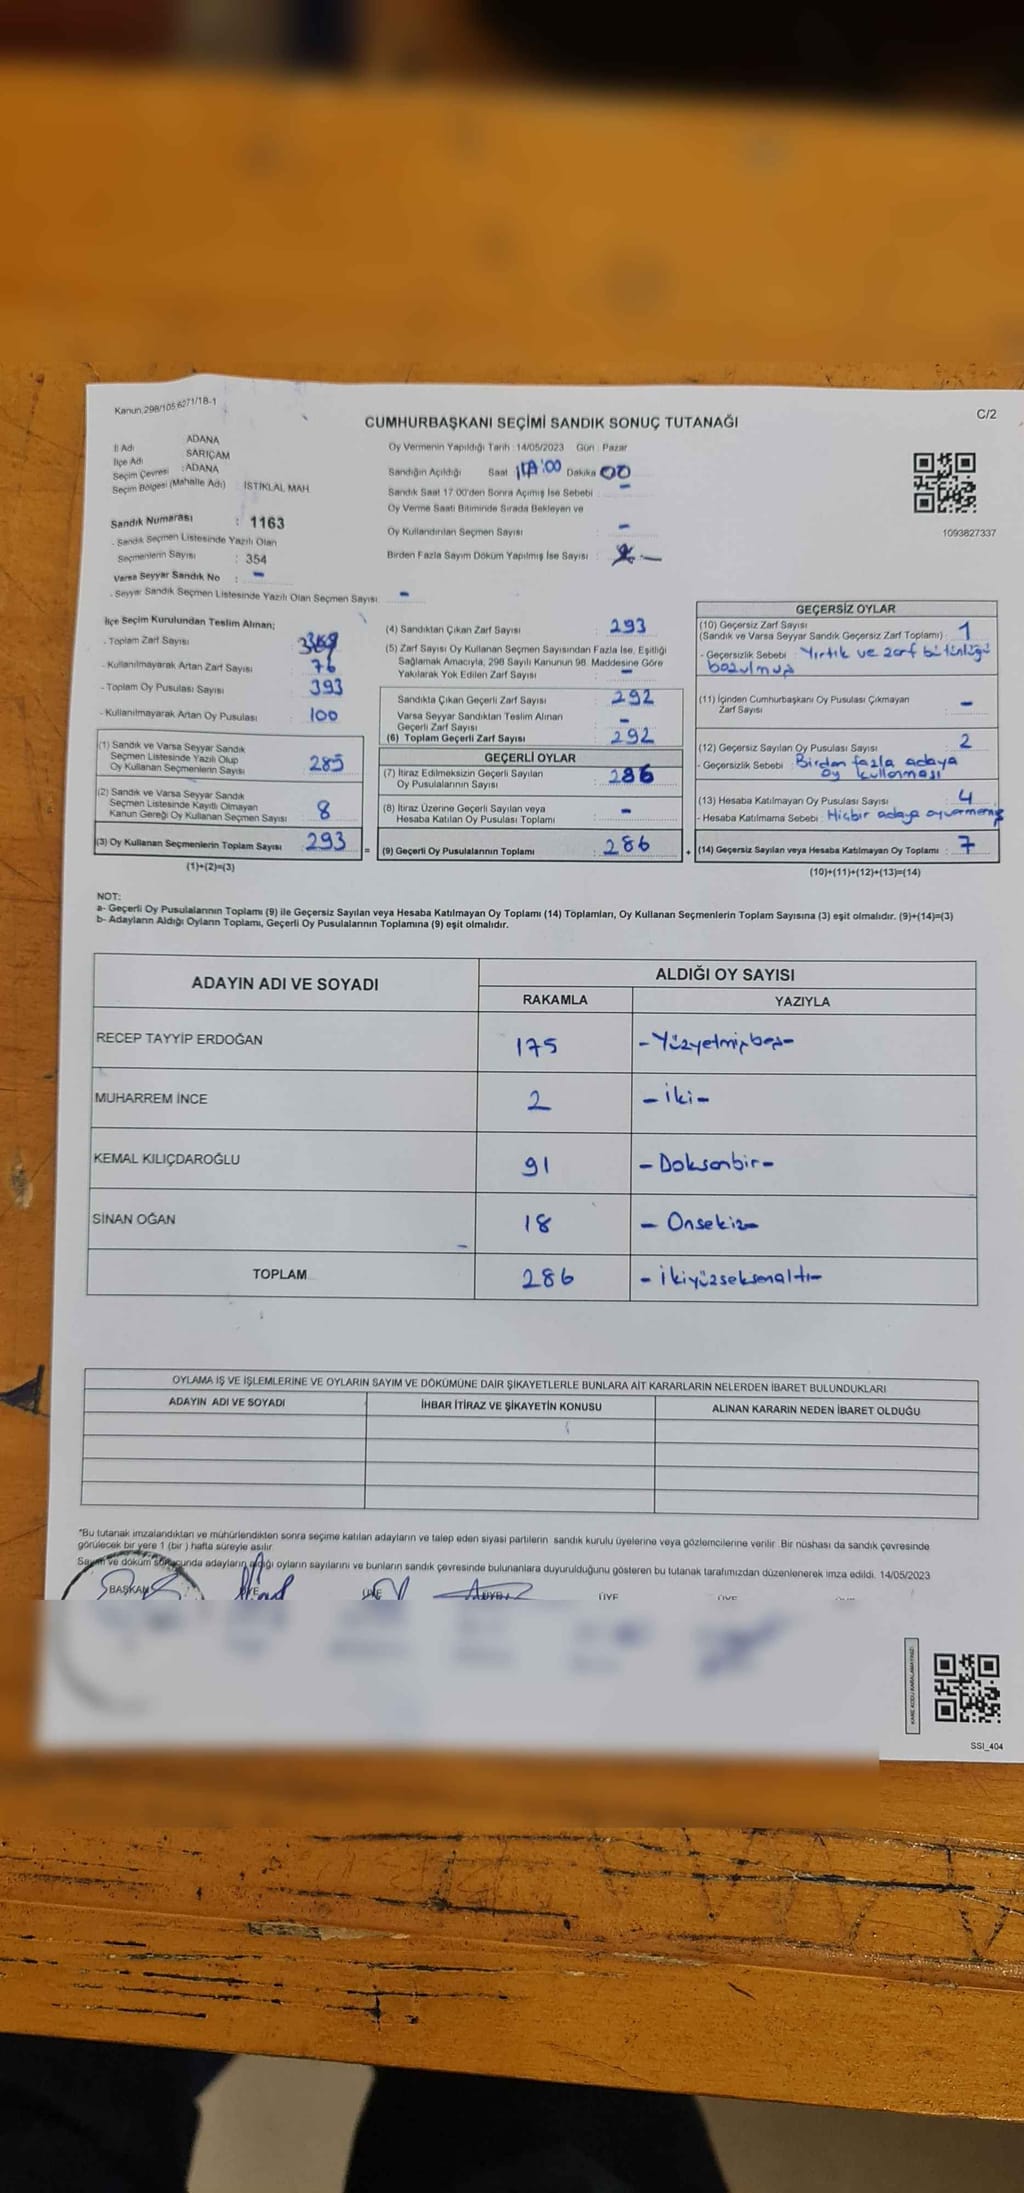 Kanun,298/105,6271/18-1
C/2
CUMHURBAŞKANI SEÇİMİ SANDIK SONUÇ TUTANAĞI
İl Adı ADANA
İlçe Adı SARIÇAM
Seçim Çevresi : ADANA
Seçim Bölgesi (Mahalle Adı) İSTİKLAL MAH.
Sandık Numarası : 1163
- Sandık Seçmen Listesinde Yazılı Olan
Seçmenlerin Sayısı : 354
Varsa Seyyar Sandık No : -
- Seyyar Sandık Seçmen Listesinde Yazılı Olan Seçmen Sayısı: -
Oy Vermenin Yapıldığı Tarih : 14/05/2023 Gün : Pazar
Sandığın Açıldığı Saat :00 Dakika 00
Sandık Saat 17:00'den Sonra Açılmış İse Sebebi : -
Oy Verme Saati Bitiminde Sırada Bekleyen ve
Oy Kullandırılan Seçmen Sayısı : -
Birden Fazla Sayım Döküm Yapılmış İse Sayısı : -
1093827337
İlçe Seçim Kurulundan Teslim Alınan;
- Toplam Zarf Sayısı
- Kullanılmayarak Artan Zarf Sayısı : 76
- Toplam Oy Pusulası Sayısı : 393
- Kullanılmayarak Artan Oy Pusulası : 100
(1) Sandık ve Varsa Seyyar Sandık
Seçmen Listesinde Yazılı Olup
Oy Kullanan Seçmenlerin Sayısı : 285
(2) Sandık ve Varsa Seyyar Sandık
Seçmen Listesinde Kayıtlı Olmayan
Kanun Gereği Oy Kullanan Seçmen Sayısı : 8
(3) Oy Kullanan Seçmenlerin Toplam Sayısı : 293
(1)+(2)=(3)
(4) Sandıktan Çıkan Zarf Sayısı : 293
(5) Zarf Sayısı Oy Kullanan Seçmen Sayısından Fazla İse, Eşitliği
Sağlamak Amacıyla, 298 Sayılı Kanunun 98. Maddesine Göre
Yakılarak Yok Edilen Zarf Sayısı : -
Sandıkta Çıkan Geçerli Zarf Sayısı : 292
Varsa Seyyar Sandıktan Teslim Alınan
Geçerli Zarf Sayısı : -
(6) Toplam Geçerli Zarf Sayısı : 292
GEÇERLİ OYLAR
(7) İtiraz Edilmeksizin Geçerli Sayılan
Oy Pusulalarının Sayısı : 286
(8) İtiraz Üzerine Geçerli Sayılan veya
Hesaba Katılan Oy Pusulası Toplamı : -
= (9) Geçerli Oy Pusulalarının Toplamı : 286
GEÇERSİZ OYLAR
(10) Geçersiz Zarf Sayısı
(Sandık ve Varsa Seyyar Sandık Geçersiz Zarf Toplamı) : 1
- Geçersizlik Sebebi : Yırtık ve zarf bütünlüğü
bozulmuş
(11) İçinden Cumhurbaşkanı Oy Pusulası Çıkmayan
Zarf Sayısı : -
(12) Geçersiz Sayılan Oy Pusulası Sayısı : 2
- Geçersizlik Sebebi : Birden fazla adaya
oy kullanması
(13) Hesaba Katılmayan Oy Pusulası Sayısı : 4
- Hesaba Katılmama Sebebi : Hiçbir adaya oy vermemiş
+ (14) Geçersiz Sayılan veya Hesaba Katılmayan Oy Toplamı : 7
(10)+(11)+(12)+(13)=(14)
NOT:
a- Geçerli Oy Pusulalarının Toplamı (9) ile Geçersiz Sayılan veya Hesaba Katılmayan Oy Toplamı (14) Toplamları, Oy Kullanan Seçmenlerin Toplam Sayısına (3) eşit olmalıdır. (9)+(14)=(3)
b- Adayların Aldığı Oyların Toplamı, Geçerli Oy Pusulalarının Toplamına (9) eşit olmalıdır.
ADAYIN ADI VE SOYADI
ALDIĞI OY SAYISI
RAKAMLA YAZIYLA
RECEP TAYYİP ERDOĞAN 175 -Yüzyetmişbeş-
MUHARREM İNCE 2 -İki-
KEMAL KILIÇDAROĞLU 91 -Doksanbir-
SİNAN OĞAN 18 -Onsekiz-
TOPLAM 286 -İkiyüzseksenaltı-
OYLAMA İŞ VE İŞLEMLERİNE VE OYLARIN SAYIM VE DÖKÜMÜNE DAİR ŞİKAYETLERLE BUNLARA AİT KARARLARIN NELERDEN İBARET BULUNDUKLARI
ADAYIN ADI VE SOYADI İHBAR İTİRAZ VE ŞİKAYETİN KONUSU ALINAN KARARIN NEDEN İBARET OLDUĞU
*Bu tutanak imzalandıktan ve mühürlendikten sonra seçime katılan adayların ve talep eden siyasi partilerin sandık kurulu üyelerine veya gözlemcilerine verilir. Bir nüshası da sandık çevresinde
görülecek bir yere 1 (bir ) hafta süreyle asılır.
Sayım ve döküm sonucunda adayların aldığı oyların sayılarını ve bunların sandık çevresinde bulunanlara duyurulduğunu gösteren bu tutanak tarafımızdan düzenlenerek imza edildi. 14/05/2023
BAŞKAN ÜYE ÜYE ÜYE ÜYE ÜYE
KARE KODU KARALAMAYINIZ
SSI_404